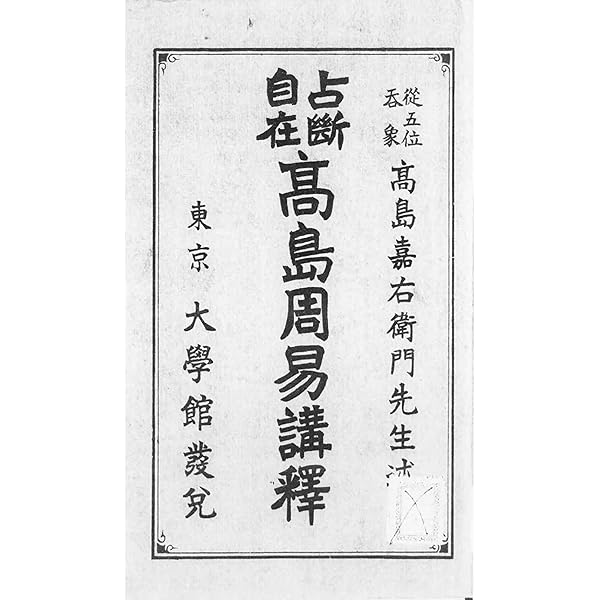 從五位
呑象
髙島嘉右衛門先生述
占斷
自在
髙島周易講釋
東京 大學館發兌